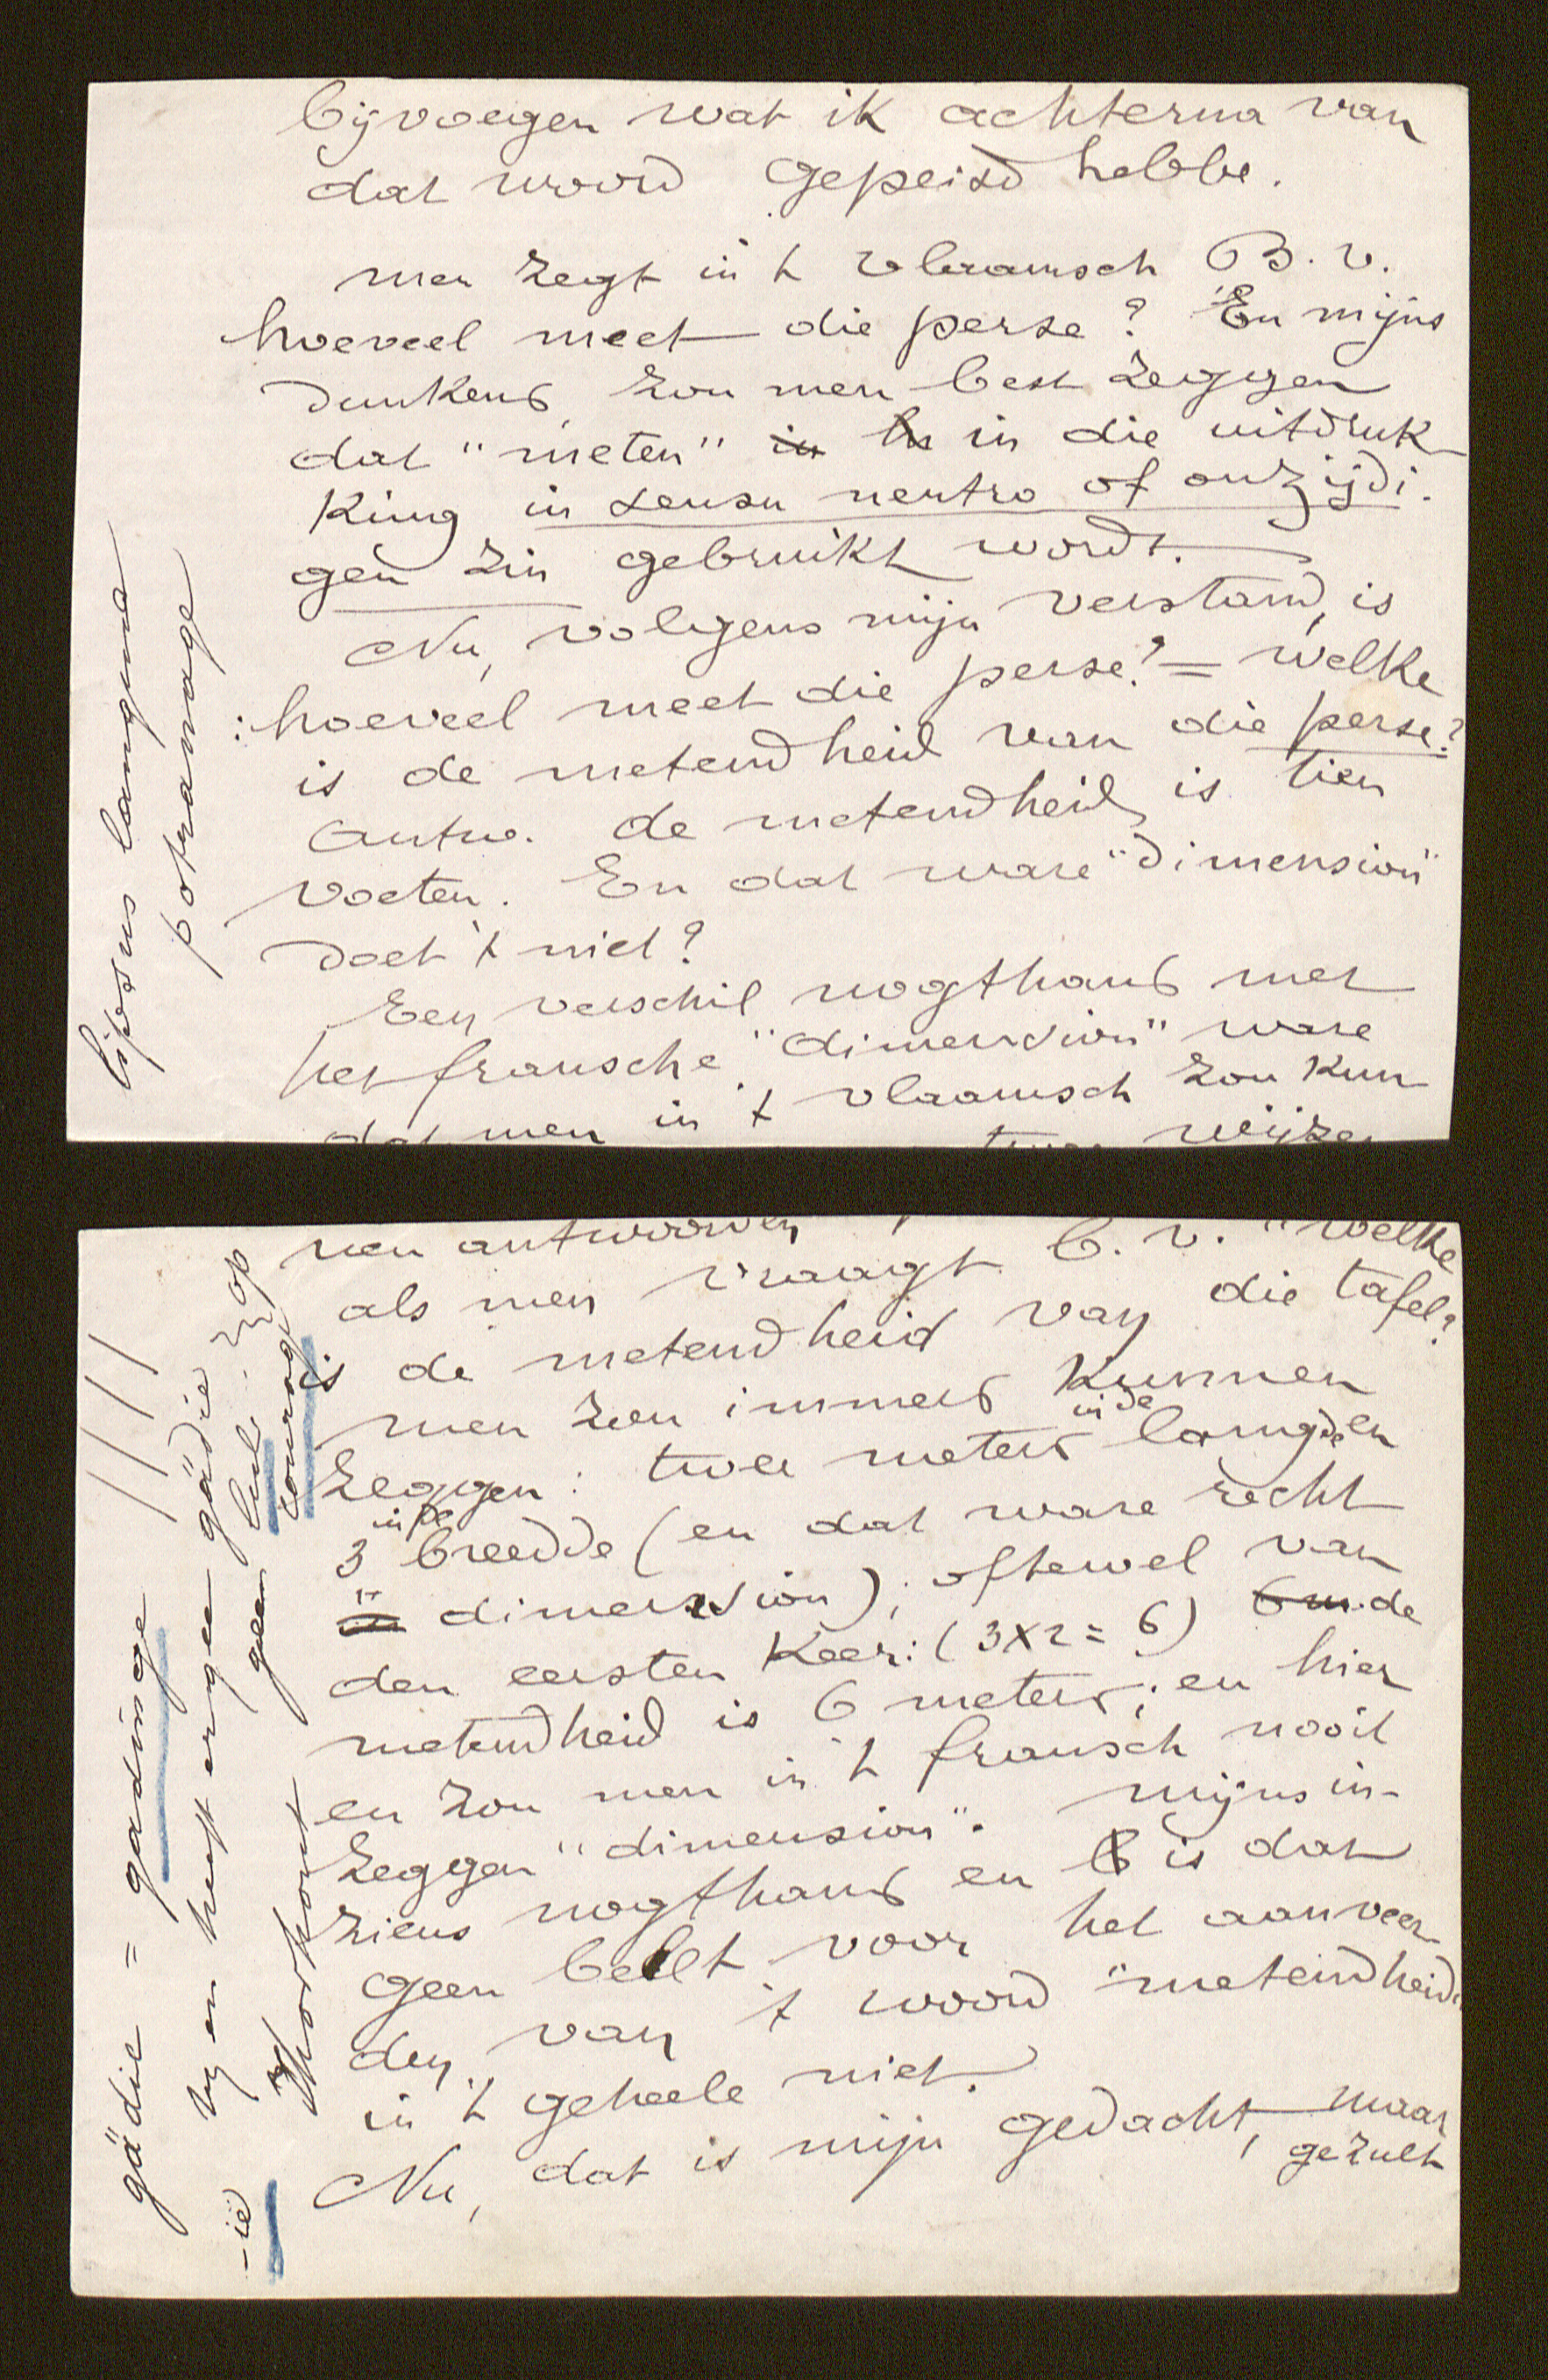 bijvoegen wat ik achterna van
dat woord gepeisd hebbe.
Men zegt in 't vlaamsch B.v.
hoeveel meet die perse? En mijns
dunkens zou men best zeggen
dat "meten" in die uitdruk-
king in sensu neutro of onzijdi-
gen zin gebruikt wordt.
Nu, volgens mijn verstand, is
: hoeveel meet die perse? = welke
is de metendheid van die perse?
Antw. de metendheid is tien
voeten. En dat ware "dimension"
doet 't niet?
Een verschil nogthans met
het fransche "dimension" ware
dat men in 't vlaamsch zou kun
twee wijzen
potranage
nen antwoorden
als men vraagt b.v. "welke
is de metendheid van die tafel?
men zou immers kunnen
zeggen: twee meters in de langde en
3 in de breedde (en dat ware recht
"dimension"); oftewel van
den eersten keer: (3x2=6) de
metendheid is 6 meters; en hier
en zou men in 't fransch nooit
zeggen "dimension". Mijns in-
ziens nogthans en is dat
geen belet voor het aanveer-
den van 't woord "metendheid"
in 't geheele niet.
Nu, dat is mijn gedacht, maar
ge zult
gädie = gadinge
hy en heeft ergen gädie
geen
op
-ie